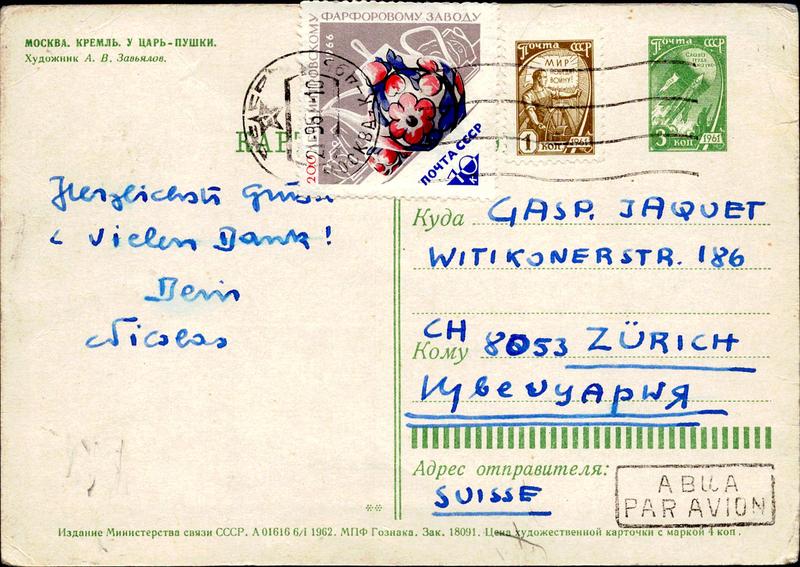 МОСКВА. КРЕМЛЬ. У ЦАРЬ-ПУШКИ.
Художник А. В. Завьялов.
ФАРФОРОВОМУ ЗАВОДУ
1966
200
ПОЧТА СССР
10 к
МОСКВА
ПОЧТА СССР
МИР
ПОБЕДИТ
ВОЙНУ!
1 КОП
1961
ПОЧТА СССР
СЛАВА
3 КОП
1961
Herzlichste Grüsse
& vielen Dank!
Dein
Nicolas
Куда GASP. JAQUET
WITIKONERSTR. 186
CH
Кому 8053 ZÜRICH
Швейцария
Адрес отправителя:
SUISSE
АВИА
PAR AVION
Издание Министерства связи СССР. А 01616 6/I 1962. МПФ Гознака. Зак. 18091. Цена художественной карточки с маркой 4 коп.